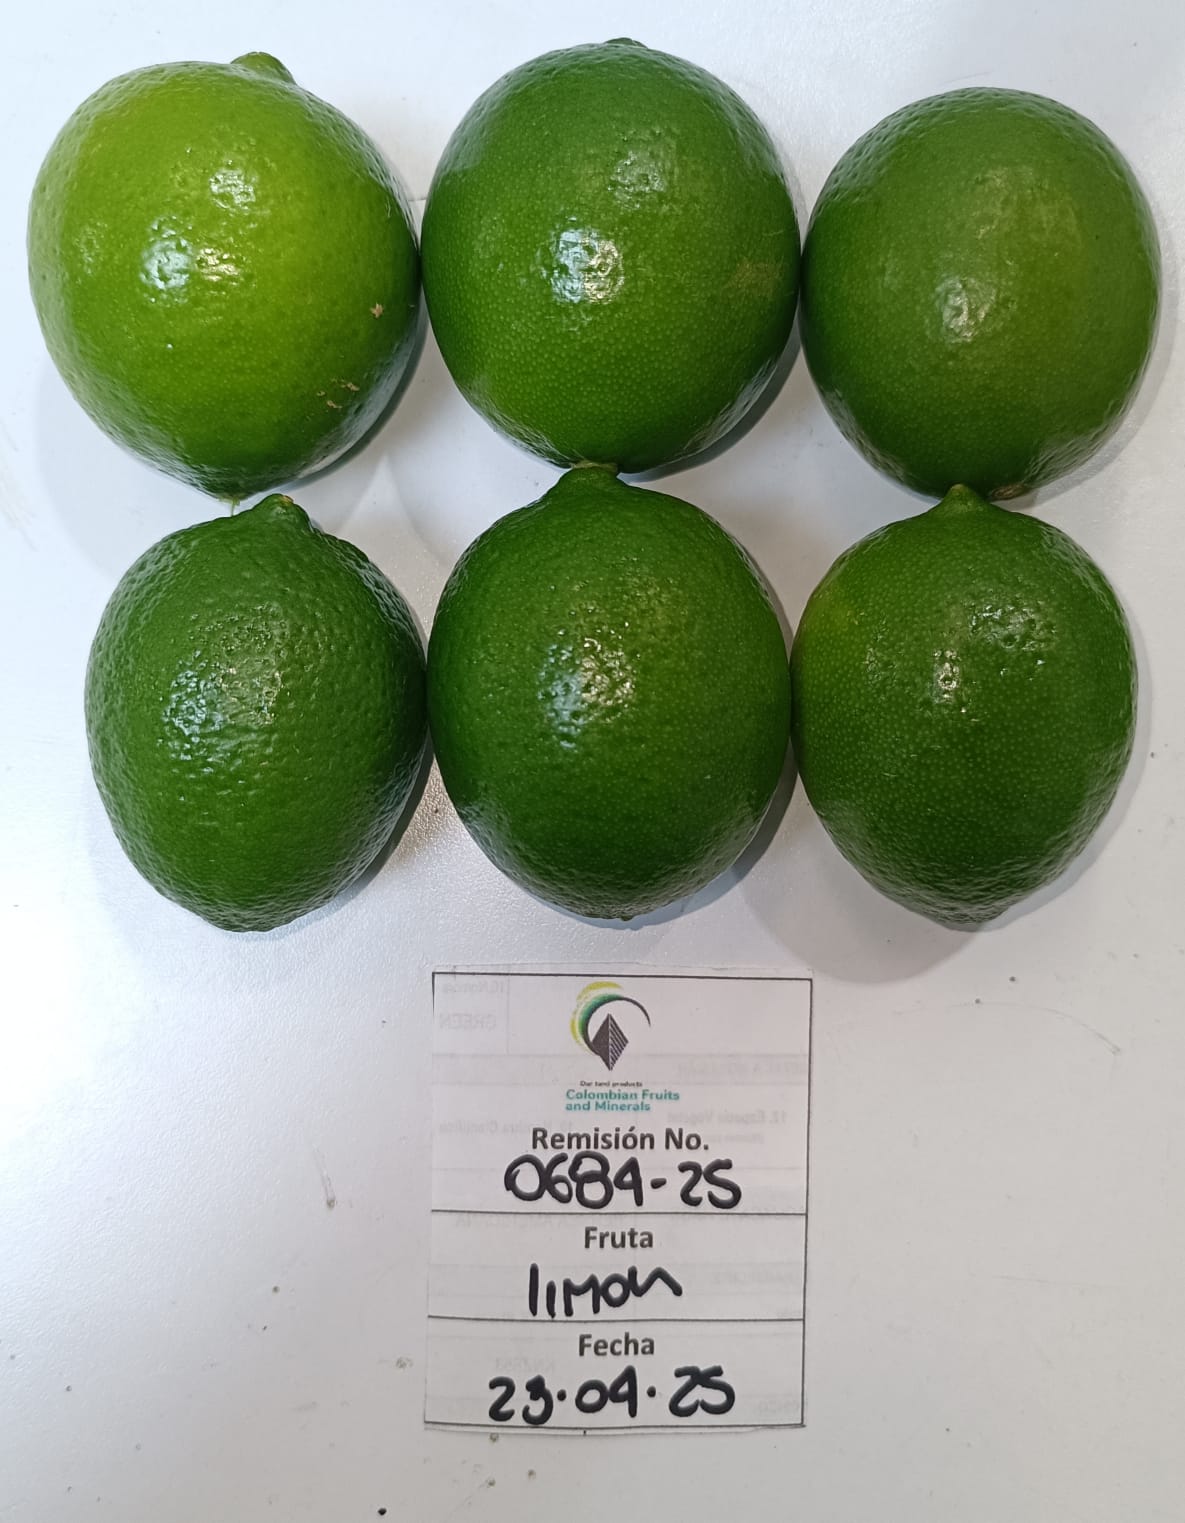 Our land products
Colombian Fruits
and Minerals
Remisión No.
0684-25
Fruta
limon
Fecha
23.04.25